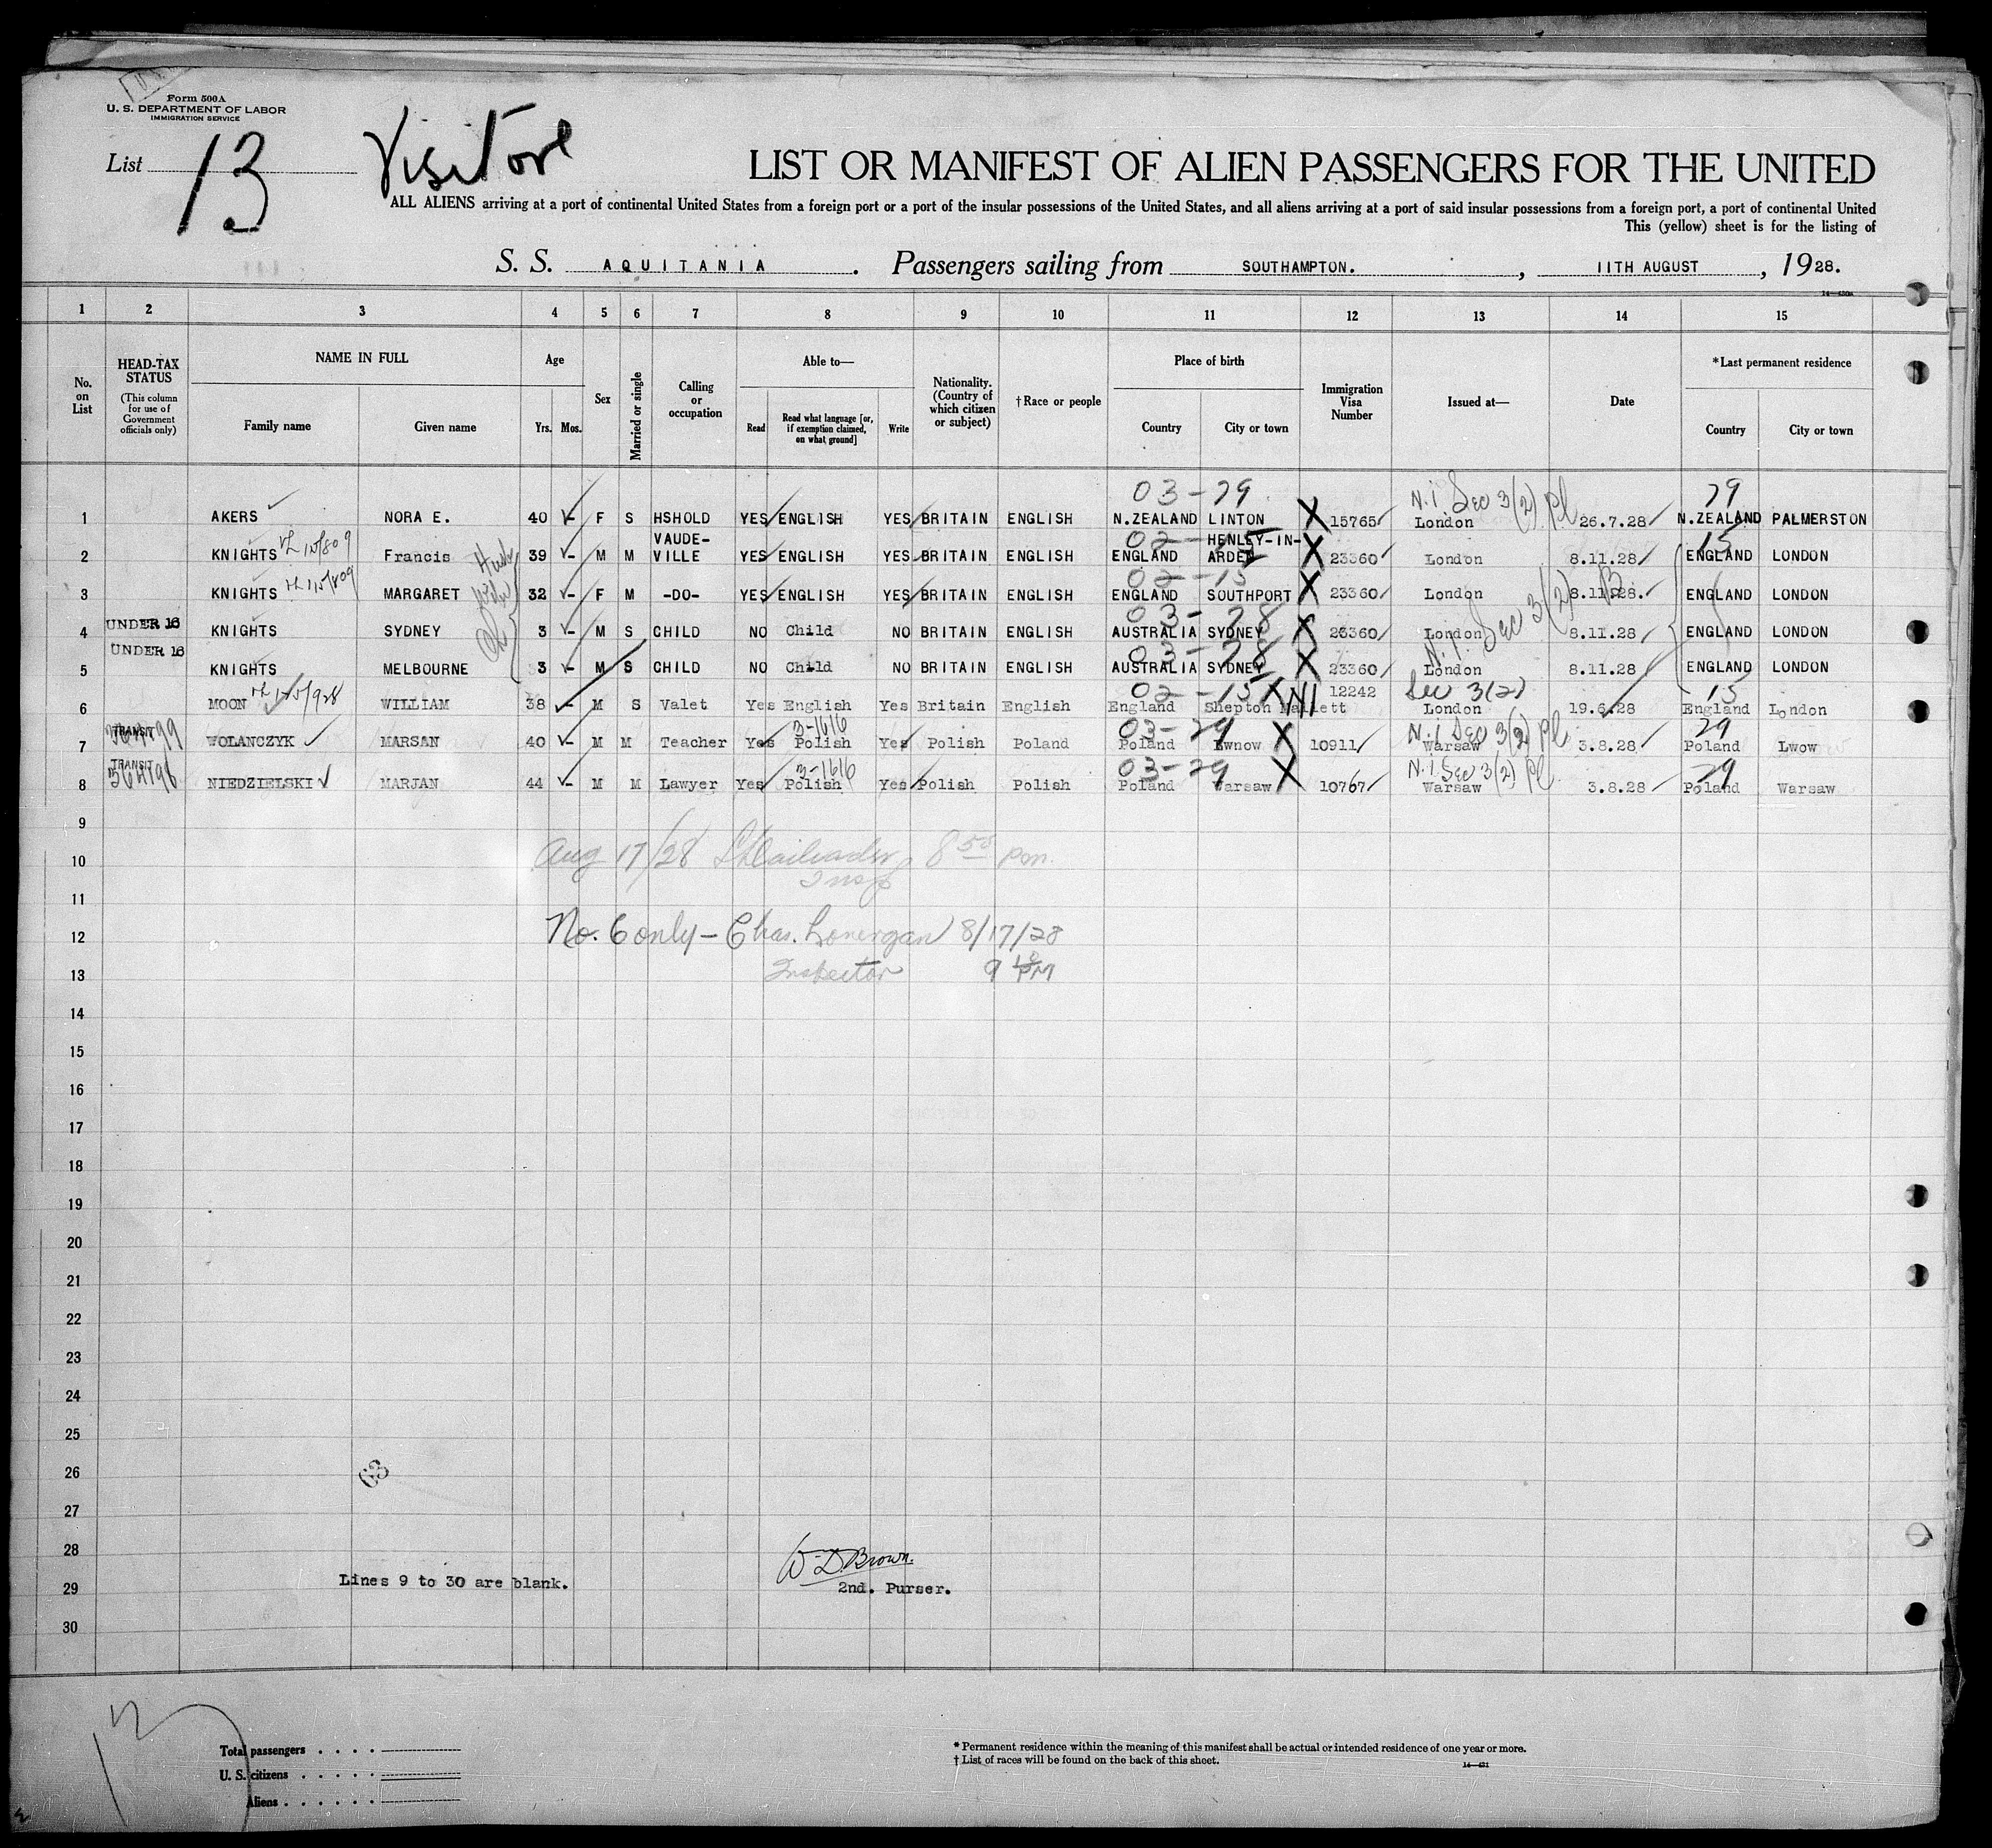 Form 500A
U. S. DEPARTMENT OF LABOR
IMMIGRATION SERVICE
List 13
Visitors
LIST OR MANIFEST OF ALIEN PASSENGERS FOR THE UNITED
ALL ALIENS arriving at a port of continental United States from a foreign port or a port of the insular possessions of the United States, and all aliens arriving at a port of said insular possessions from a foreign port, a port of continental United
This (yellow) sheet is for the listing of
S. S. AQUITANIA. Passengers sailing from SOUTHAMPTON. , 11TH AUGUST , 1928.
1 2 3 4 5 6 7 8 9 10 11 12 13 14 15
No. on List
HEAD-TAX STATUS (This column for use of Government officials only)
NAME IN FULL
Family name Given name
Age
Yrs. Mos.
Sex
Married or single
Calling or occupation
Able to—
Read
Read what language [or, if exemption claimed, on what ground]
Write
Nationality. (Country of which citizen or subject)
† Race or people
Place of birth
Country City or town
Immigration Visa Number
Issued at—
Date
* Last permanent residence
Country City or town
03-79 N.I. Sec 3(2) Pl 79
1 AKERS NORA E. 40 - F S HSHOLD YES ENGLISH YES BRITAIN ENGLISH N.ZEALAND LINTON X 15765 London 26.7.28 N.ZEALAND PALMERSTON
2 KNIGHTS Francis Husb 39 - M M VAUDE-VILLE YES ENGLISH YES BRITAIN ENGLISH 02-15 ENGLAND HENLEY-IN-ARDEN X 23360 London 8.11.28 15 ENGLAND LONDON
3 KNIGHTS MARGARET Wife 32 - F M -DO- YES ENGLISH YES BRITAIN ENGLISH 02-15 ENGLAND SOUTHPORT X 23360 London 8.11.28. ENGLAND LONDON
N.I. Sec 3(2)
4 UNDER 16 KNIGHTS SYDNEY 3 - M S CHILD NO Child NO BRITAIN ENGLISH 03-78 AUSTRALIA SYDNEY X 23360 London 8.11.28 ENGLAND LONDON
5 UNDER 16 KNIGHTS MELBOURNE 3 - M S CHILD NO Child NO BRITAIN ENGLISH 03-78 AUSTRALIA SYDNEY X 23360 London 8.11.28 ENGLAND LONDON
6 MOON WILLIAM 38 - M S Valet Yes English Yes Britain English 02-15 England Shepton Mallett X 12242 Sec 3(2) London 19.6.28 15 England London
7 TRANSIT WOLANCZYK MARSAN 40 - M M Teacher Yes 3-1616 Polish Yes Polish Poland 03-29 Poland Lwnow X 10911 N.I Sec 3(2) Pl Warsaw 3.8.28 29 Poland Lwow
8 TRANSIT NIEDZIELSKI MARJAN 44 - M M Lawyer Yes 3-1616 Polish Yes Polish Polish 03-29 Poland Warsaw X 10767 N.I Sec 3(2) Pl Warsaw 3.8.28 29 Poland Warsaw
9
10 Aug 17/28 8 50 pm.
Insp
11
12 No. 6 only - Chas. Lonergan 8/17/28
13 Inspector 9 10 PM
14
15
16
17
18
19
20
21
22
23
24
25
26 63
27
28 W D Brown.
29 Lines 9 to 30 are blank. 2nd. Purser.
30
Total passengers
U. S. citizens
Aliens
* Permanent residence within the meaning of this manifest shall be actual or intended residence of one year or more.
† List of races will be found on the back of this sheet.